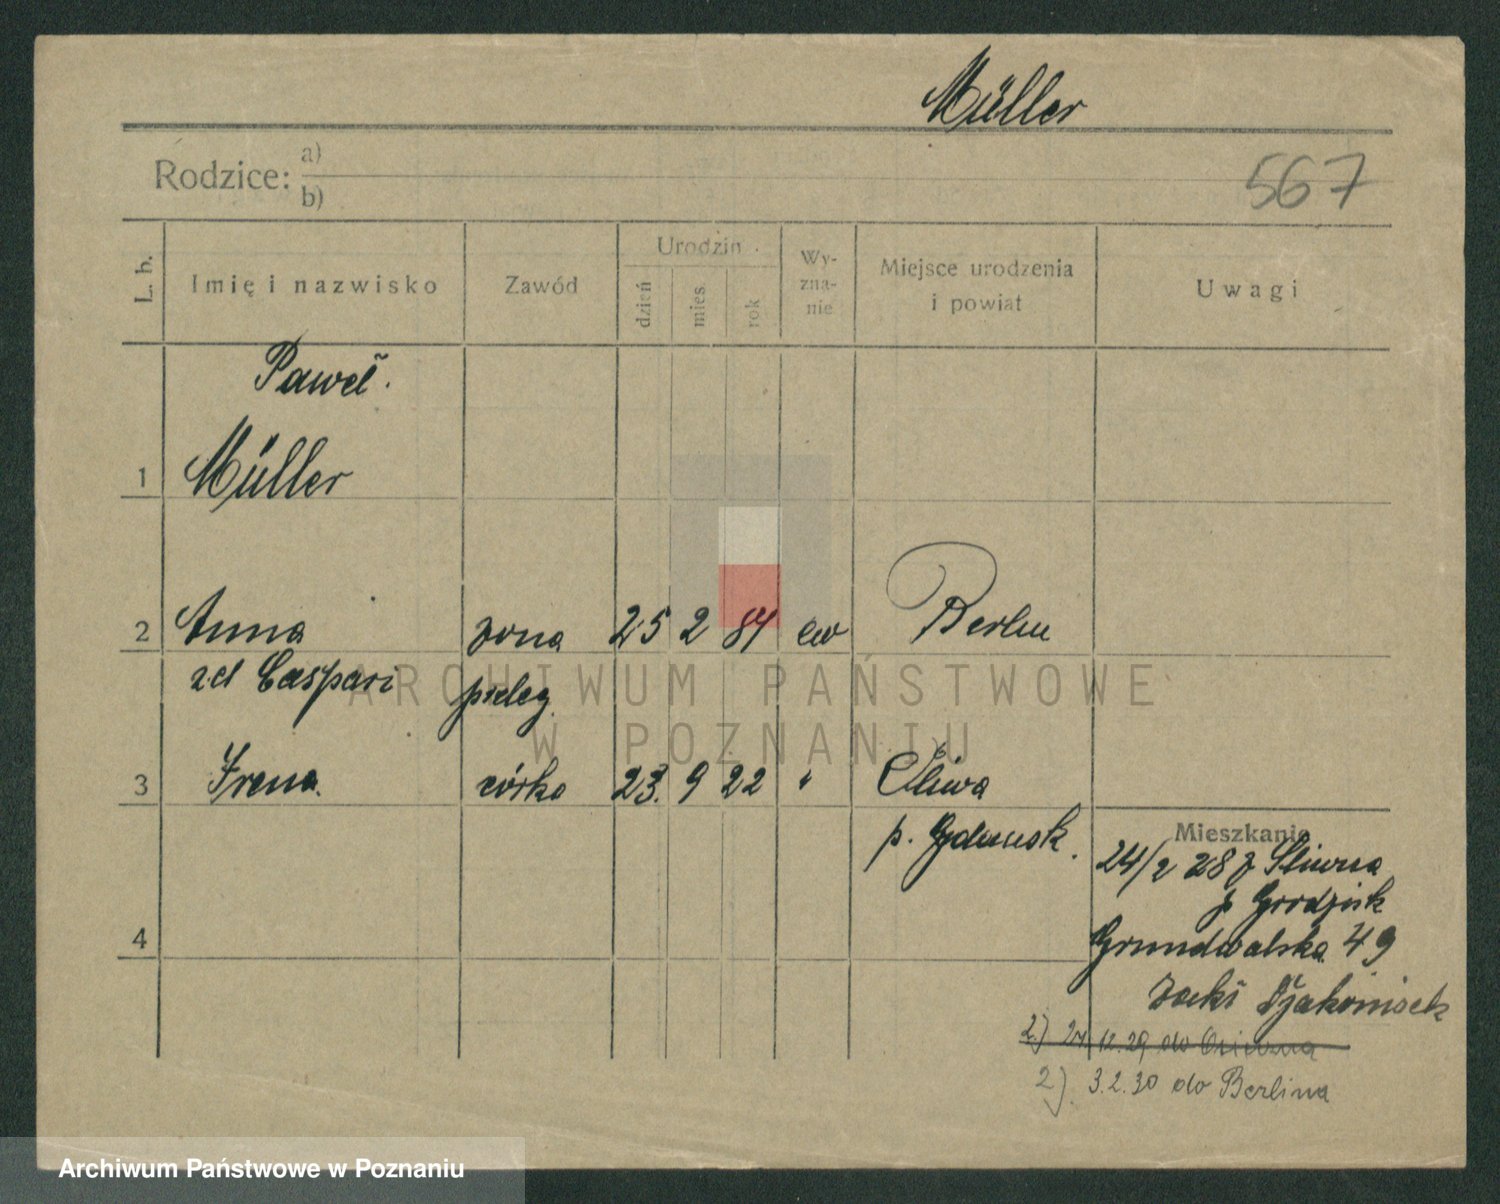 Müller
Rodzice: a)
b)
567
L. b.
Imię i nazwisko
Zawód
Urodzin
dzień
mies.
rok
Wy-
zna-
nie
Miejsce urodzenia
i powiat
Uwagi
Paweł.
1 Müller
2 Anna żona 25 2 84 ew Berlin
zd Caspari pieleg
3 Irena córka 23. 9 22 " Oliwa
p. Gdansk.
Mieszkanie
24/2 28 z
p Grodzisk
4
Grundwalska 49
2) 12.29 do
2). 3.2.30 do Berlina
ARCHIWUM PAŃSTWOWE
W POZNANIU
Archiwum Państwowe w Poznaniu